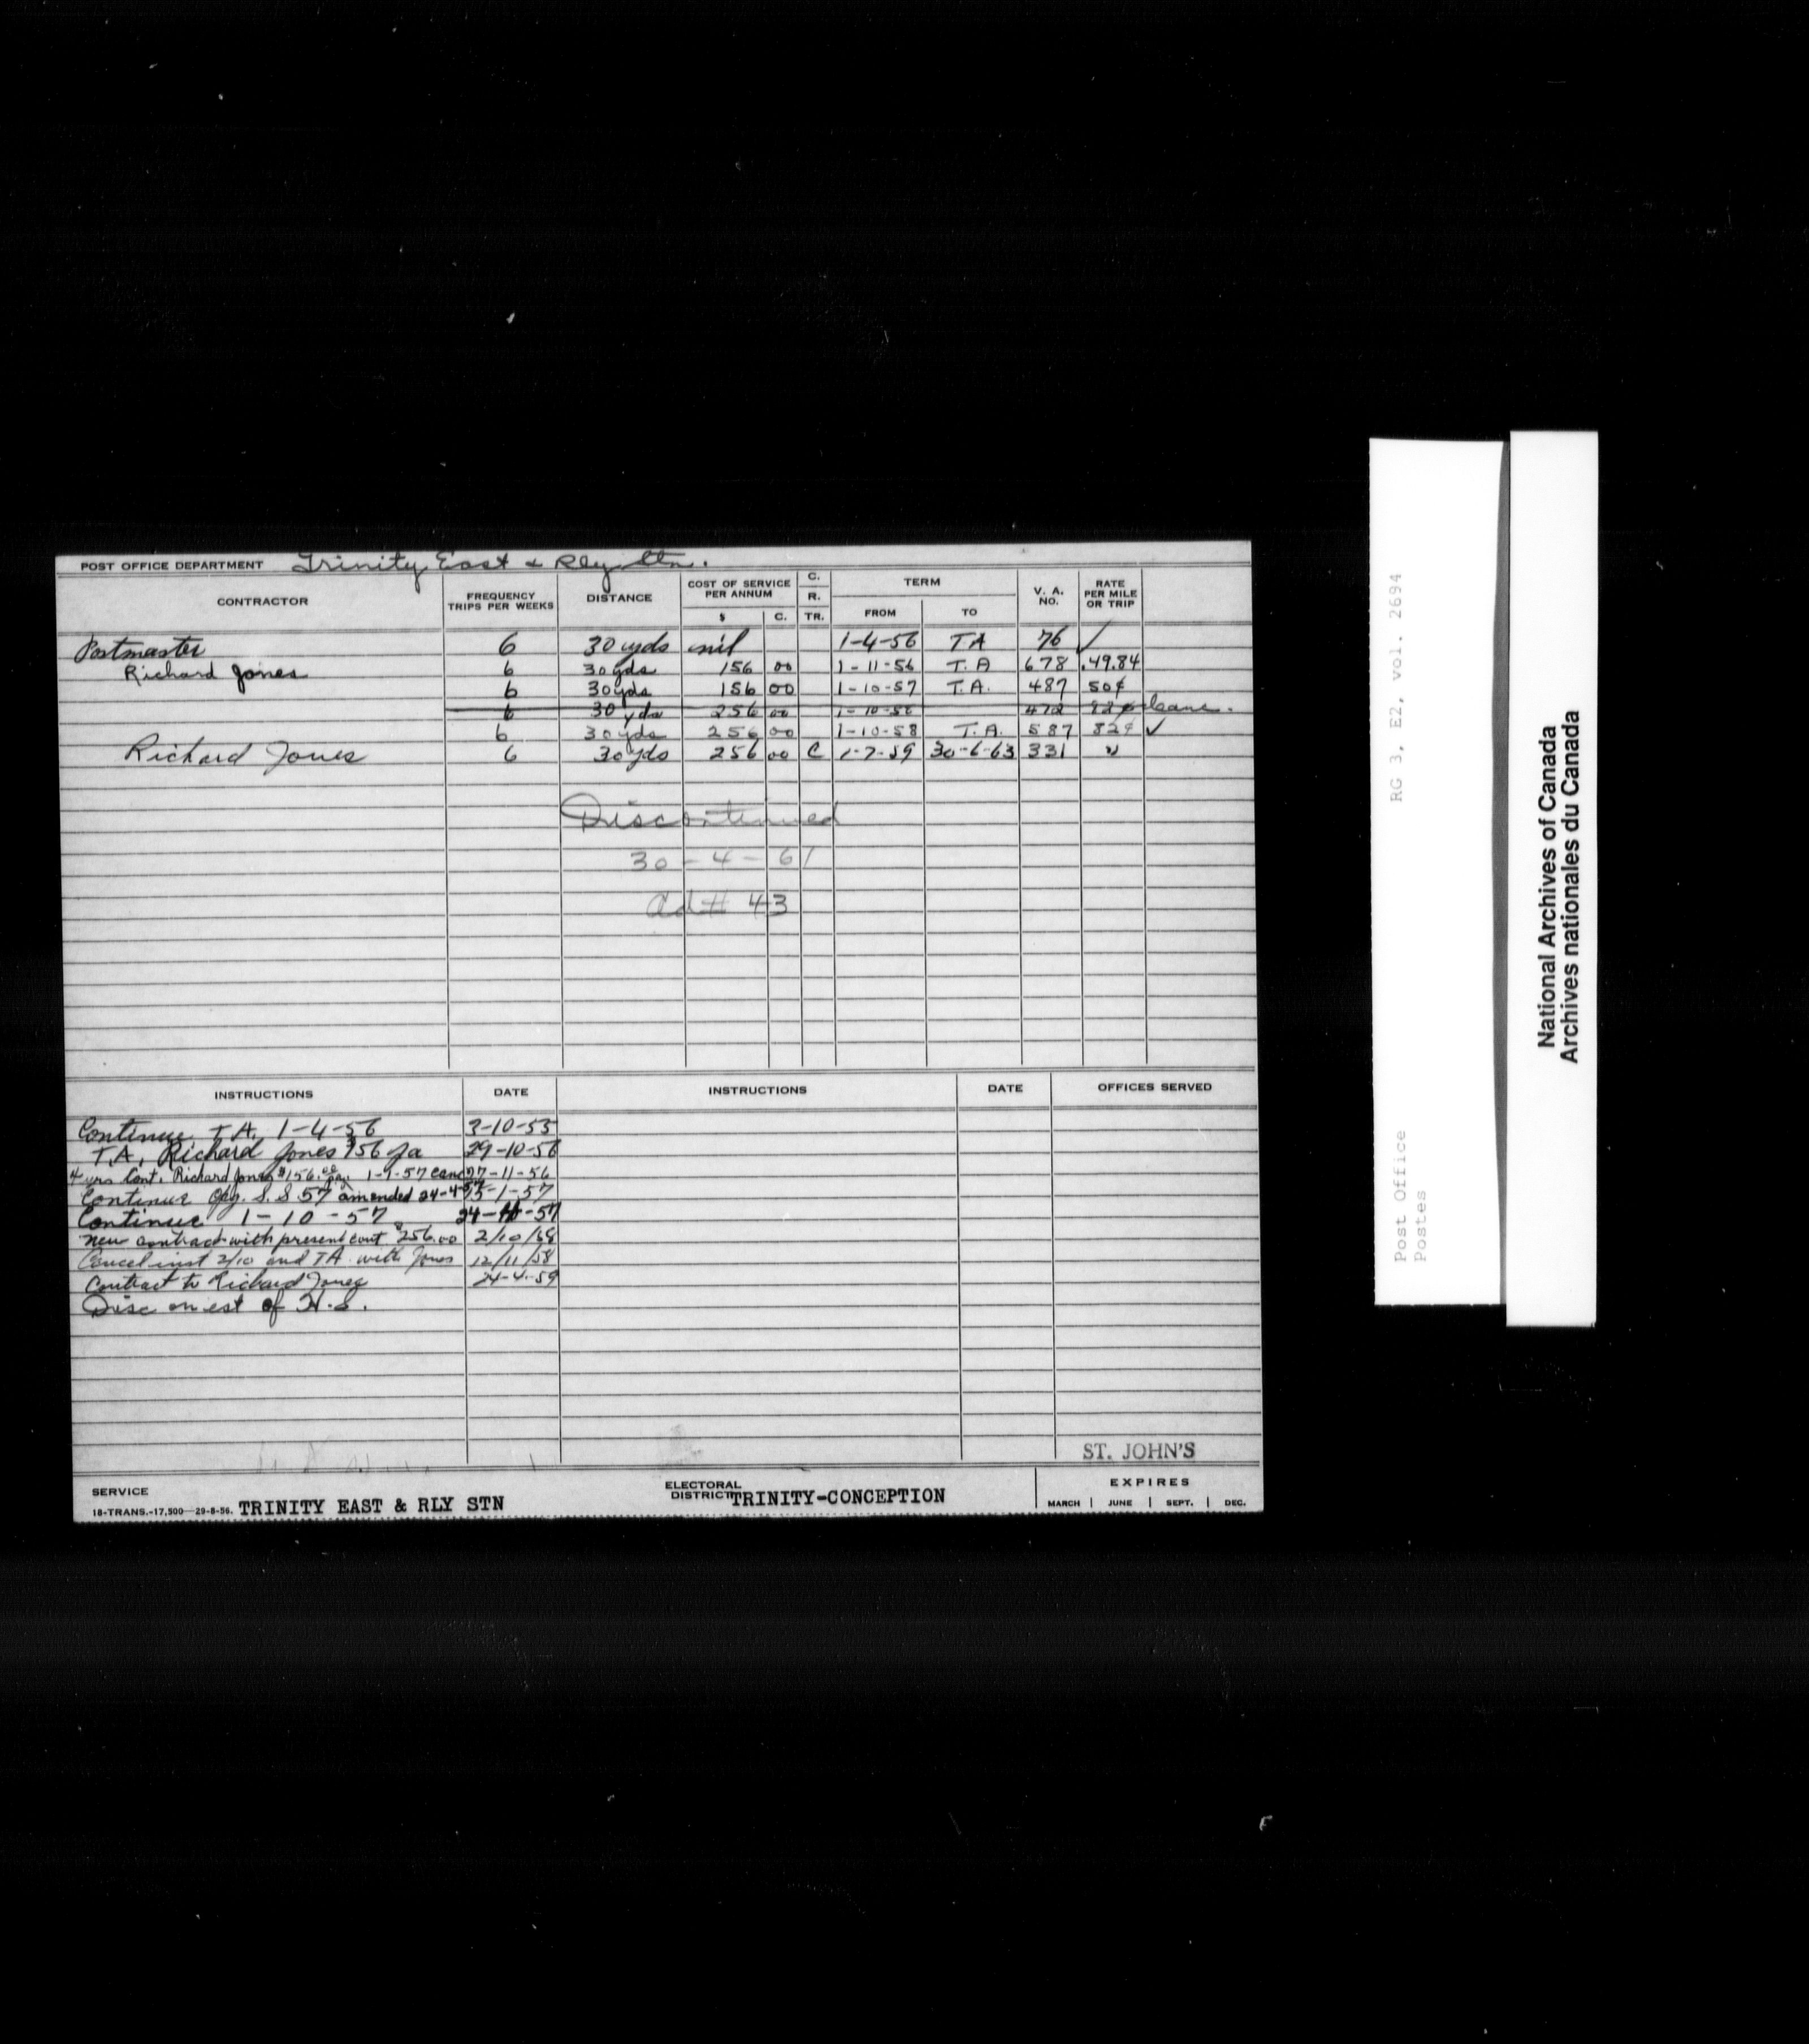 POST OFFICE DEPARTMENT Trinity East & Rly Stn.
CONTRACTOR FREQUENCY TRIPS PER WEEKS DISTANCE COST OF SERVICE PER ANNUM $ C. C. R. TR. TERM FROM TO V. A. NO. RATE PER MILE OR TRIP
Postmaster 6 30 yds nil 1-4-56 TA 76 ✓
Richard Jones 6 30 yds 156 00 1-11-56 T.A 678 .49.84
6 30 yds 156 00 1-10-57 T.A. 487 50¢
6 30 yds 256 00 1-10-58 472 82¢ Canc.
6 30 yds 256 00 1-10-58 T.A. 587 82¢ ✓
Richard Jones 6 30 yds 256 00 C 1-7-59 30-6-63 331 "
Discontinued
30-4-61
Ad # 43
INSTRUCTIONS DATE INSTRUCTIONS DATE OFFICES SERVED
Continue T.A. 1-4-56 3-10-55
T.A. Richard Jones $156 pa 29-10-56
4 yrs Cont. Richard Jones $156.00 pa. 1-1-57 canc 27-11-56
Continue Opg. S.S 57 amended 24-4-57 15-1-57
Continue 1-10-57 24-57
new contract with present cont $256.00 2/10/58
Cancel inst 2/10 and TA. with Jones 12/11/58
Contract to Richard Jones 24-4-59
Disc on est of H.S.
ST. JOHN'S
SERVICE
18-TRANS.-17,500—29-8-56. TRINITY EAST & RLY STN
ELECTORAL DISTRICT TRINITY-CONCEPTION
EXPIRES
MARCH | JUNE | SEPT. | DEC.
Post Office RG 3, E2, vol. 2694
Postes
National Archives of Canada
Archives nationales du Canada